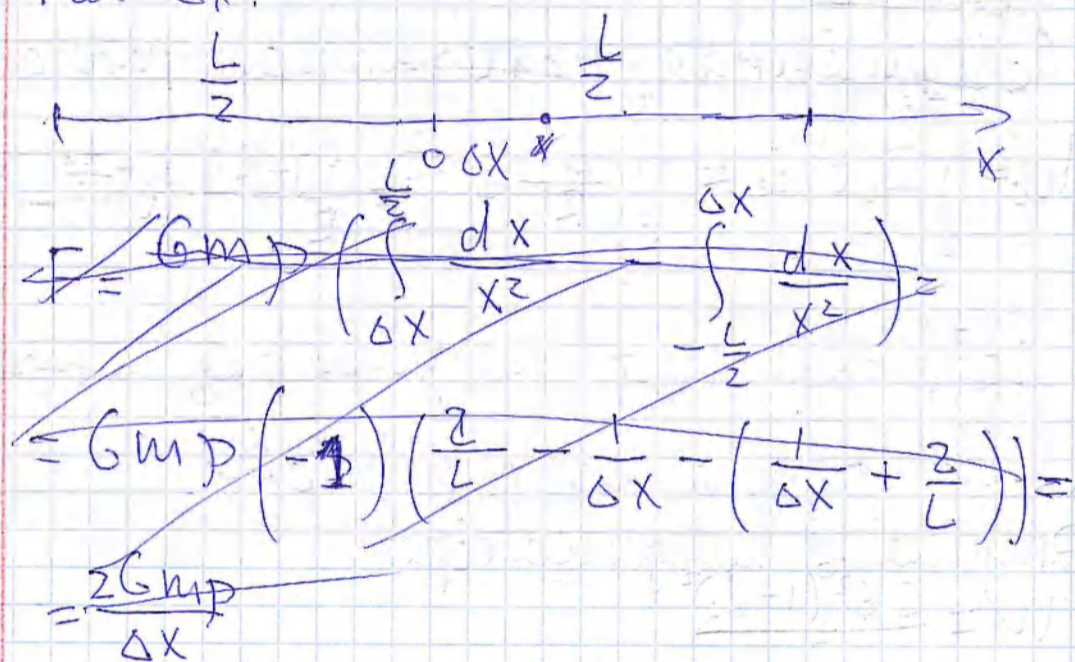 Δx.
L/2 L/2
0 Δx x
F = Gmρ ( ∫_{Δx}^{L/2} dx/x² - ∫_{-L/2}^{Δx} dx/x² ) =
= Gmρ (-1) ( 2/L - 1/Δx - ( 1/Δx + 2/L ) ) =
= 2Gmρ/Δx